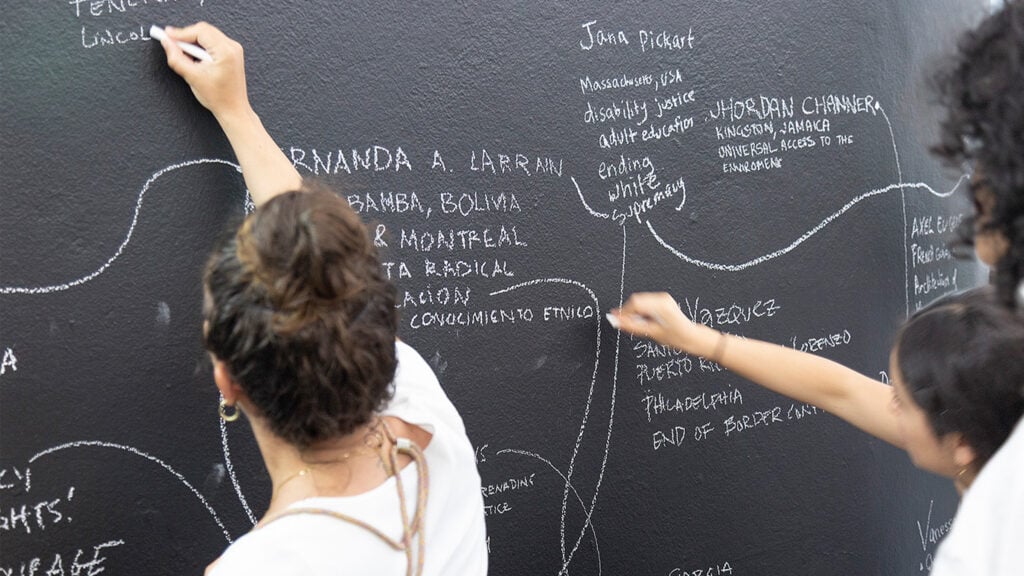 LINCOL
Jana Pickart
Massachusetts, USA
disability justice
adult education
ending
white
supremacy
JHORDAN CHANNER
KINGSTON, JAMAICA
UNIVERSAL ACCESS TO THE
ENVIROMENT
RNANDA A. LARRAIN
BAMBA, BOLIVIA
& MONTREAL
TA RADICAL
ACIÓN
CONOCIMIENTO ETNICO
VAZQUEZ
LORENZO
PUERTO RI
PHILADELPHIA
END OF BORDER CONT
AXEL
French
Architection
of
A
CY
GHTS!
RENADING
TICE
GARCIA
Vaness